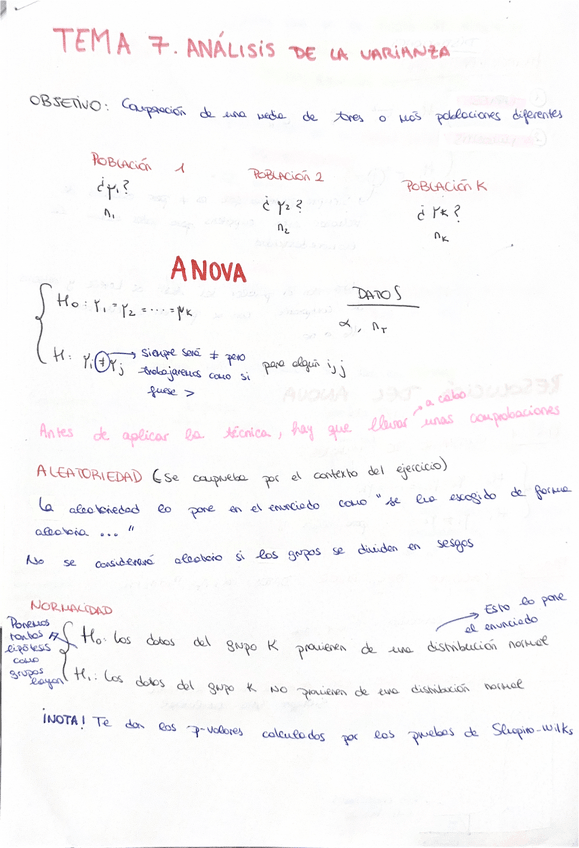 TEMA 7. ANÁLISIS DE LA VARIANZA
OBJETIVO: Comparación de una media de tres o más poblaciones diferentes
POBLACIÓN 1
¿μ₁?
n₁
POBLACIÓN 2
¿μ₂?
n₂
POBLACIÓN K
¿μK?
nK
ANOVA
H₀: μ₁ = μ₂ = ..... = μK
H₁: μi ≠ μj para algún i, j
siempre será ≠ pero
trabajaremos como si
fuese >
DATOS
α, nT
a cabo
Antes de aplicar la técnica, hay que llevar unas comprobaciones
ALEATORIEDAD (Se comprueba por el contexto del ejercicio)
La aleatoriedad lo pone en el enunciado como "se ha escogido de forma
aleatoria ..."
No se considerará aleatorio si los grupos se dividen en sesgos
NORMALIDAD
Ponemos
tantas
hipótesis
como
grupos
hayan
Esto lo pone
el enunciado
H₀: Los datos del grupo K provienen de una distribución normal
H₁: Los datos del grupo K NO provienen de una distribución normal
¡NOTA! Te dan los p-valores calculados por las pruebas de Shapiro-Wilks